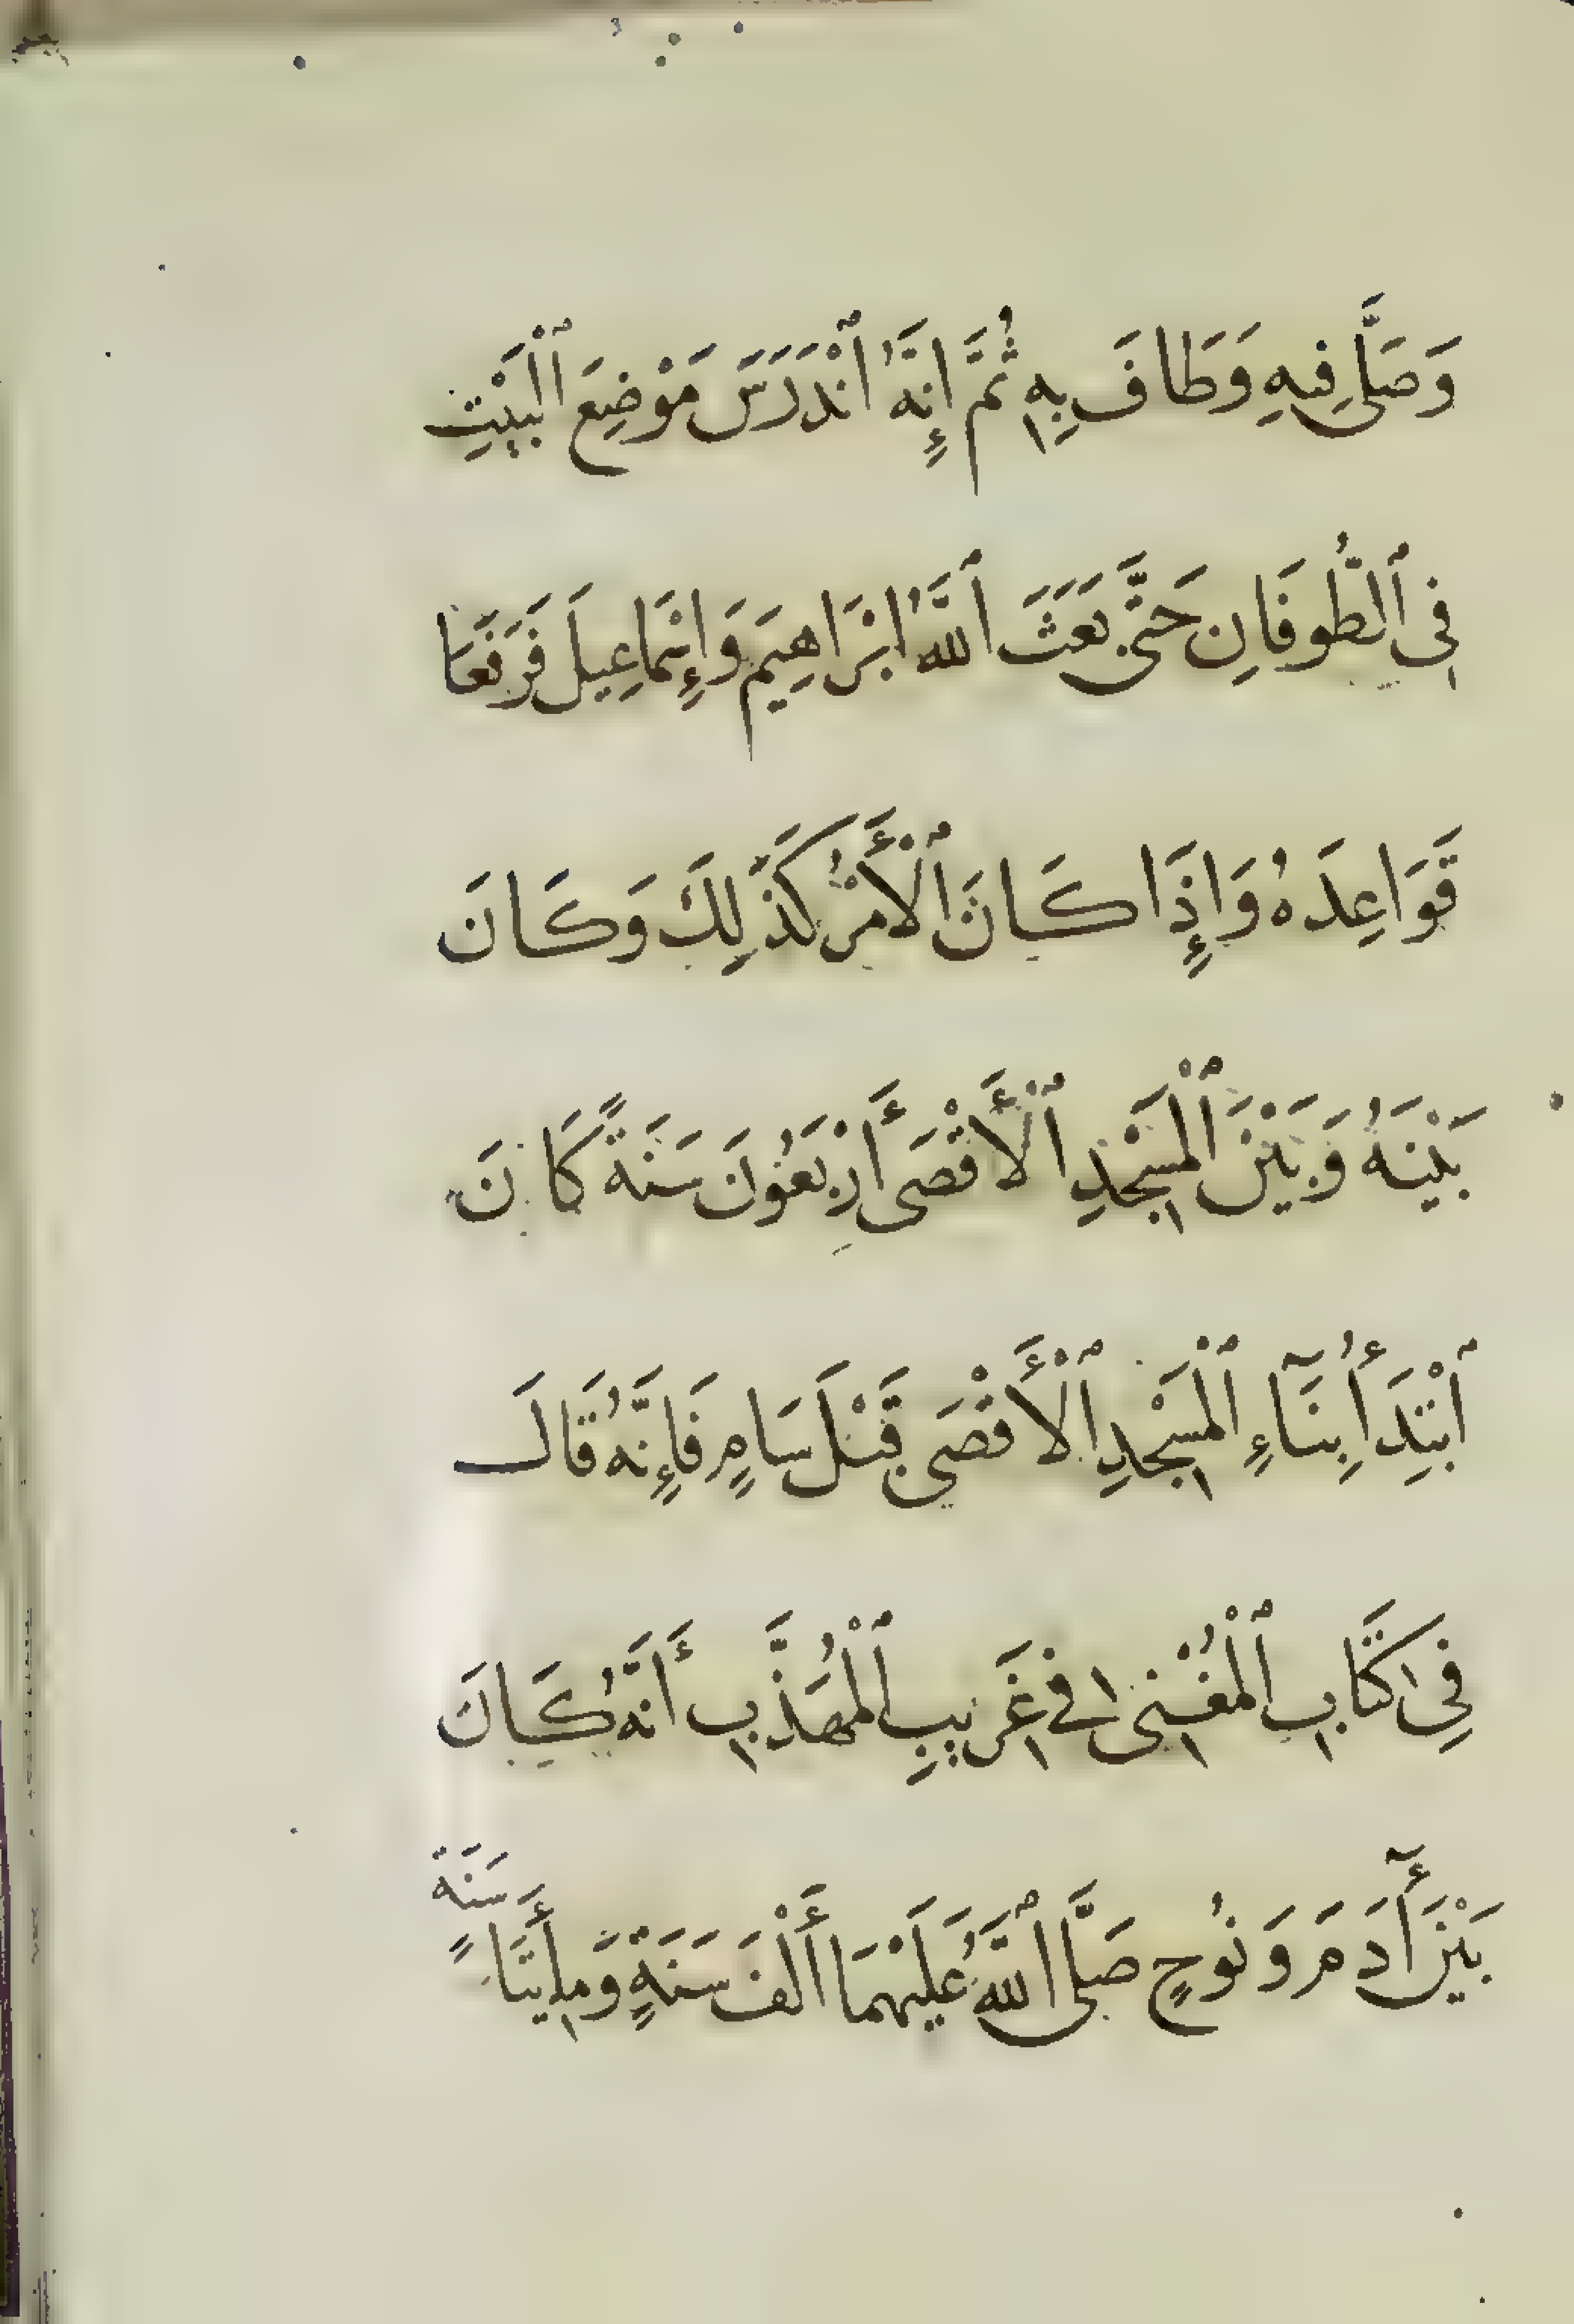 وَصَلَّى فِيهِ وَطَافَ بِهِ ثُمَّ إِنَّهُ ٱنْدَرَسَ مَوْضِعَ ٱلْبَيْتِ
فِي ٱلطُّوفَانِ حَتَّى بَعَثَ ٱللَّهُ ابْرَاهِيمَ وَإِسْمَاعِيلَ فَرَفَعَا
قَوَاعِدَهُ وَإِذَا كَانَ ٱلْأَمْرُ كَذَٰلِكَ وَكَانَ
بَيْنَهُ وَبَيْنَ ٱلْمَسْجِدِ ٱلْأَقْصَى أَرْبَعُونَ سَنَةً كَانَ
ٱبْتِدَأُ بِنَآءِ ٱلْمَسْجِدِ ٱلْأَقْصَى قَبْلَ سَامٍ فَإِنَّهُ قَالَ
فِي كِتَابِ ٱلْمُغْنِي فِي غَرِيبِ ٱلْمُهَذَّبِ أَنَّهُ كَانَ
بَيْنَ أٓدَمَ وَنُوحٍ صَلَّى ٱللَّهُ عَلَيْهِمَا أَلْفَ سَنَةٍ وَمِأَيتَا سَنَةٍ